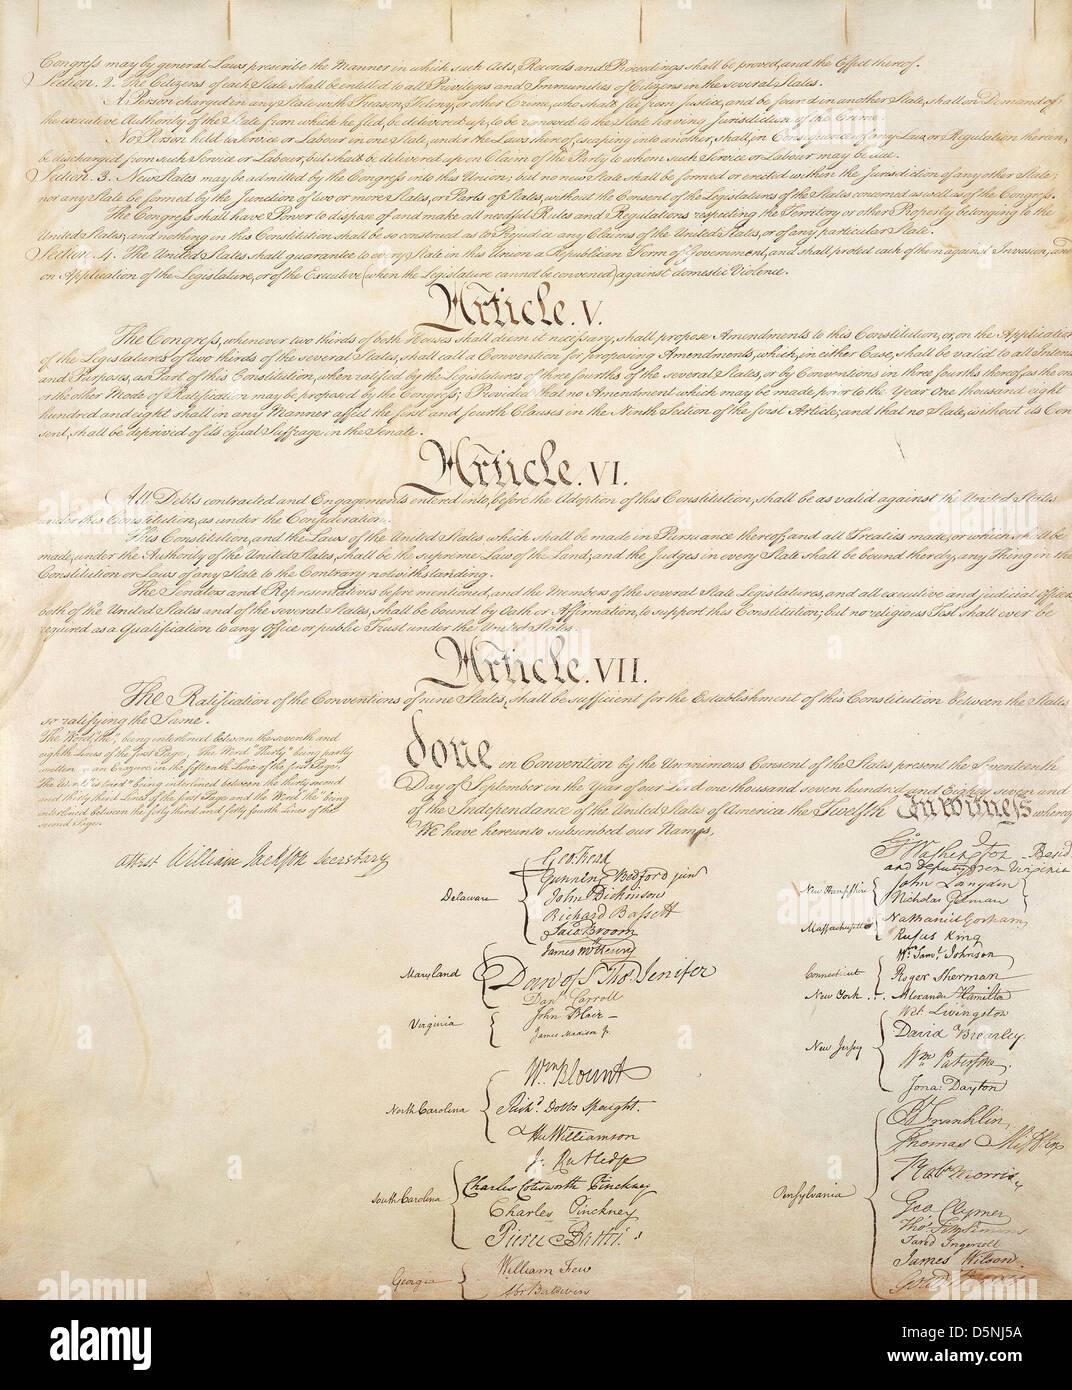 Congress may by general Laws prescribe the Manner in which such Acts, Records and Proceedings shall be proved, and the Effect thereof.
Section. 2. The Citizens of each State shall be entitled to all Privileges and Immunities of Citizens in the several States.
A Person charged in any State with Treason, Felony, or other Crime, who shall flee from Justice, and be found in another State, shall on Demand of
the executive Authority of the State from which he fled, be delivered up, to be removed to the State having Jurisdiction of the Crime.
No Person held to Service or Labour in one State, under the Laws thereof, escaping into another, shall, in Consequence of any Law or Regulation therein,
be discharged from such Service or Labour, but shall be delivered up on Claim of the Party to whom such Service or Labour may be due.
Section. 3. New States may be admitted by the Congress into this Union; but no new State shall be formed or erected within the Jurisdiction of any other State;
nor any State be formed by the Junction of two or more States, or Parts of States, without the Consent of the Legislatures of the States concerned as well as of the Congress.
The Congress shall have Power to dispose of and make all needful Rules and Regulations respecting the Territory or other Property belonging to the
United States; and nothing in this Constitution shall be so construed as to Prejudice any Claims of the United States, or of any particular State.
Section. 4. The United States shall guarantee to every State in this Union a Republican Form of Government, and shall protect each of them against Invasion; and
on Application of the Legislature, or of the Executive (when the Legislature cannot be convened) against domestic Violence.
Article. V.
The Congress, whenever two thirds of both Houses shall deem it necessary, shall propose Amendments to this Constitution, or, on the Application
of the Legislatures of two thirds of the several States, shall call a Convention for proposing Amendments, which, in either Case, shall be valid to all Intents
and Purposes, as Part of this Constitution, when ratified by the Legislatures of three fourths of the several States, or by Conventions in three fourths thereof, as the one
or the other Mode of Ratification may be proposed by the Congress; Provided that no Amendment which may be made prior to the Year One thousand eight
hundred and eight shall in any Manner affect the first and fourth Clauses in the Ninth Section of the first Article; and that no State, without its Con
sent, shall be deprived of its equal Suffrage in the Senate.
Article. VI.
All Debts contracted and Engagements entered into, before the Adoption of this Constitution, shall be as valid against the United States
under this Constitution, as under the Confederation.
This Constitution, and the Laws of the United States which shall be made in Pursuance thereof; and all Treaties made, or which shall be
made, under the Authority of the United States, shall be the supreme Law of the Land; and the Judges in every State shall be bound thereby, any Thing in the
Constitution or Laws of any State to the Contrary notwithstanding.
The Senators and Representatives before mentioned, and the Members of the several State Legislatures, and all executive and judicial Officers,
both of the United States and of the several States, shall be bound by Oath or Affirmation, to support this Constitution; but no religious Test shall ever be
required as a Qualification to any Office or public Trust under the United States.
Article. VII.
The Ratification of the Conventions of nine States, shall be sufficient for the Establishment of this Constitution between the States
so ratifying the Same.
The Word, "the," being interlined between the seventh and
eighth Lines of the first Page, The Word "Thirty" being partly
written on an Erazure in the fifteenth Line of the first Page,
The Words "is tried" being interlined between the thirty second
and thirty third Lines of the first Page and the Word "the" being
interlined between the forty third and forty fourth Lines of the
second Page.
Attest William Jackson Secretary
done in Convention by the Unanimous Consent of the States present the Seventeenth
Day of September in the Year of our Lord one thousand seven hundred and Eighty seven and
of the Independance of the United States of America the Twelfth In witness whereof
We have hereunto subscribed our Names,
Delaware
Geo: Read
Gunning Bedford jun
John Dickinson
Richard Bassett
Jaco: Broom
Maryland
James McHenry
Dan of St Thos. Jenifer
Danl Carroll
Virginia
John Blair—
James Madison Jr.
North Carolina
Wm Blount
Richd. Dobbs Spaight.
Hu Williamson
South Carolina
J. Rutledge
Charles Cotesworth Pinckney
Charles Pinckney
Pierce Butler.
Georgia
William Few
Abr Baldwin
Go. Washington Presidt.
and deputy from Virginia
New Hampshire
John Langdon
Nicholas Gilman
Massachusetts
Nathaniel Gorham
Rufus King
Connecticut
Wm. Saml. Johnson
Roger Sherman
New York . . .
Alexander Hamilton
New Jersey
Wil: Livingston
David Brearley.
Wm. Paterson.
Jona: Dayton
Pensylvania
B Franklin
Thomas Mifflin
Robt Morris
Geo. Clymer
Thos. FitzSimons
Jared Ingersoll
James Wilson.
Gouv Morris
alamy
Image ID: D5NJ5A
www.alamy.com